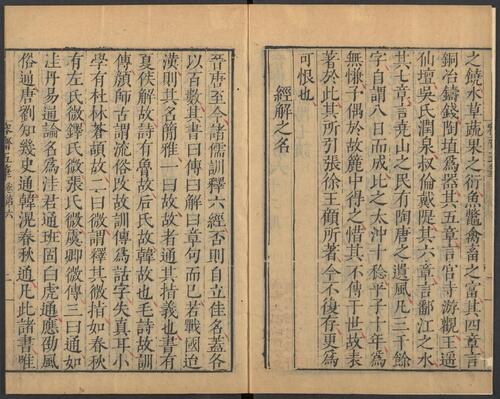 之饒水草蔬果之衍魚鼈禽畜之富其四章言
銅冶鑄錢陶埴爲器其五章言宮寺游觀王遥
仙壇吳氏潤泉叔倫戴隄其六章言鄱江之水
其七章言堯山之民有陶唐之遺風凡三千餘
字自謂八日而成比之太沖十稔平子十年爲
無慊予偶於故簏中得之惜其不傳于世故表
著於此其所引張徐王顧所著今不復存更爲
可恨也
經解之名
晉唐至今諸儒訓釋六經否則自立佳名蓋各
以百數其書曰傳曰解曰章句而已若戰國迨
漢則其名簡雅一曰故故者通其指義也書有
夏侯解故詩有魯故后氏故韓故也毛詩故訓
傳顏師古謂流俗改故訓傳爲詁字失真耳小
學有杜林蒼頡故二曰微謂釋其微指如春秋
有左氏微鐸氏微張氏微虞卿微傳三曰通如
洼丹易通論名爲洼君通班固白虎通應劭風
俗通唐劉知幾史通韓滉春秋通凡此諸書唯
容齋五筆 卷第六